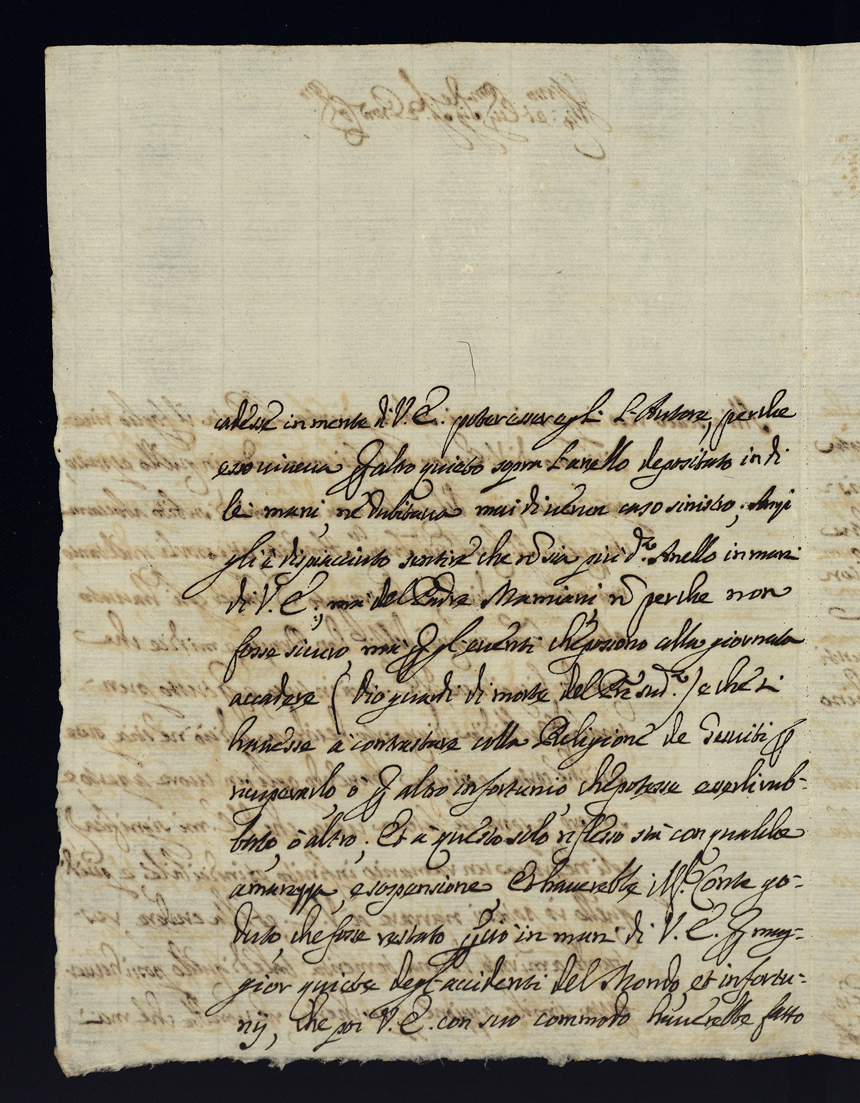 cadesse in mente di V. E. poter esser egli L'Autore, perche
esso viveva p altro quieto sopra L'anello depositato in di
lei mani, ne dubitava mai di verun caso sinistro, Anzi
gli è dispiaciuto sentire che nõ sia più d.º Anello in mani
di V. E., mà del Padre Mamiani nõ perche non
fosse sicuro, mà p gl'eventi che possono alla giornata
accadere (Dio guardi di morte del Pře sud.º) e che si
havesse à contrastare colla Religione de Gesuiti p
ricuperarlo, ò p altro infortunio, che potesse esserli rub-
bato, ò altro. Et a questo solo riflesso stà con qualche
amarezza, e sospensione, Et haverebbe il S.r Conte go-
duto, che fosse restato in mani di V. E. p mag-
gior quiete degl'accidenti del Mondo, et infortu-
nij, che poi V. E. con suo commodo haverebbe fatto